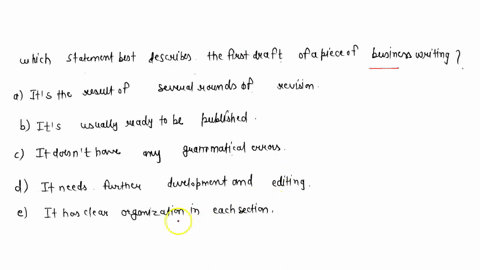 which statement best describes the first draft of a piece of business writing?
a) It's the result of several rounds of revision.
b) It's usually ready to be published.
c) It doesn't have any grammatical errors.
d) It needs further development and editing.
e) It has clear organization in each section.